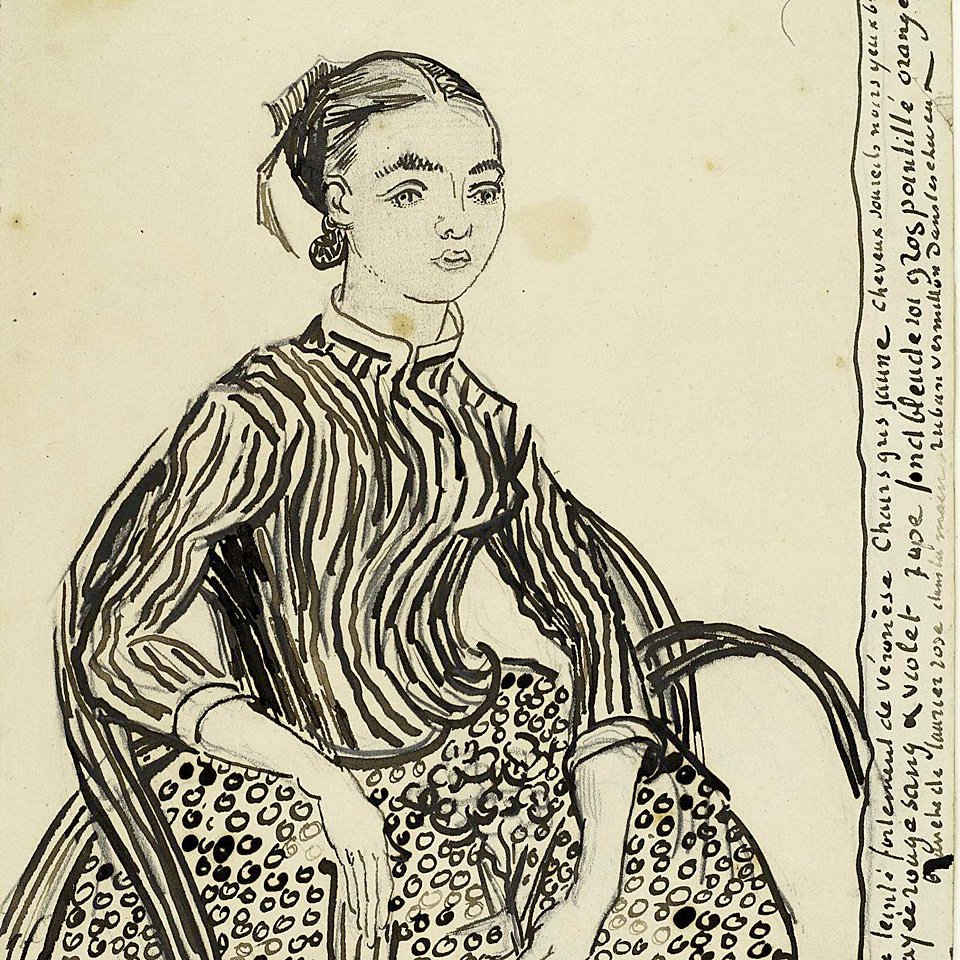 teinté fortement de véronèse Chairs gris jaune cheveux sourcils noirs yeux b
ayée rouge sang & violet jupe fond bleu de roi gros pointillé orangé
branche de laurier rose dans la main ruban vermillon dans les cheveux